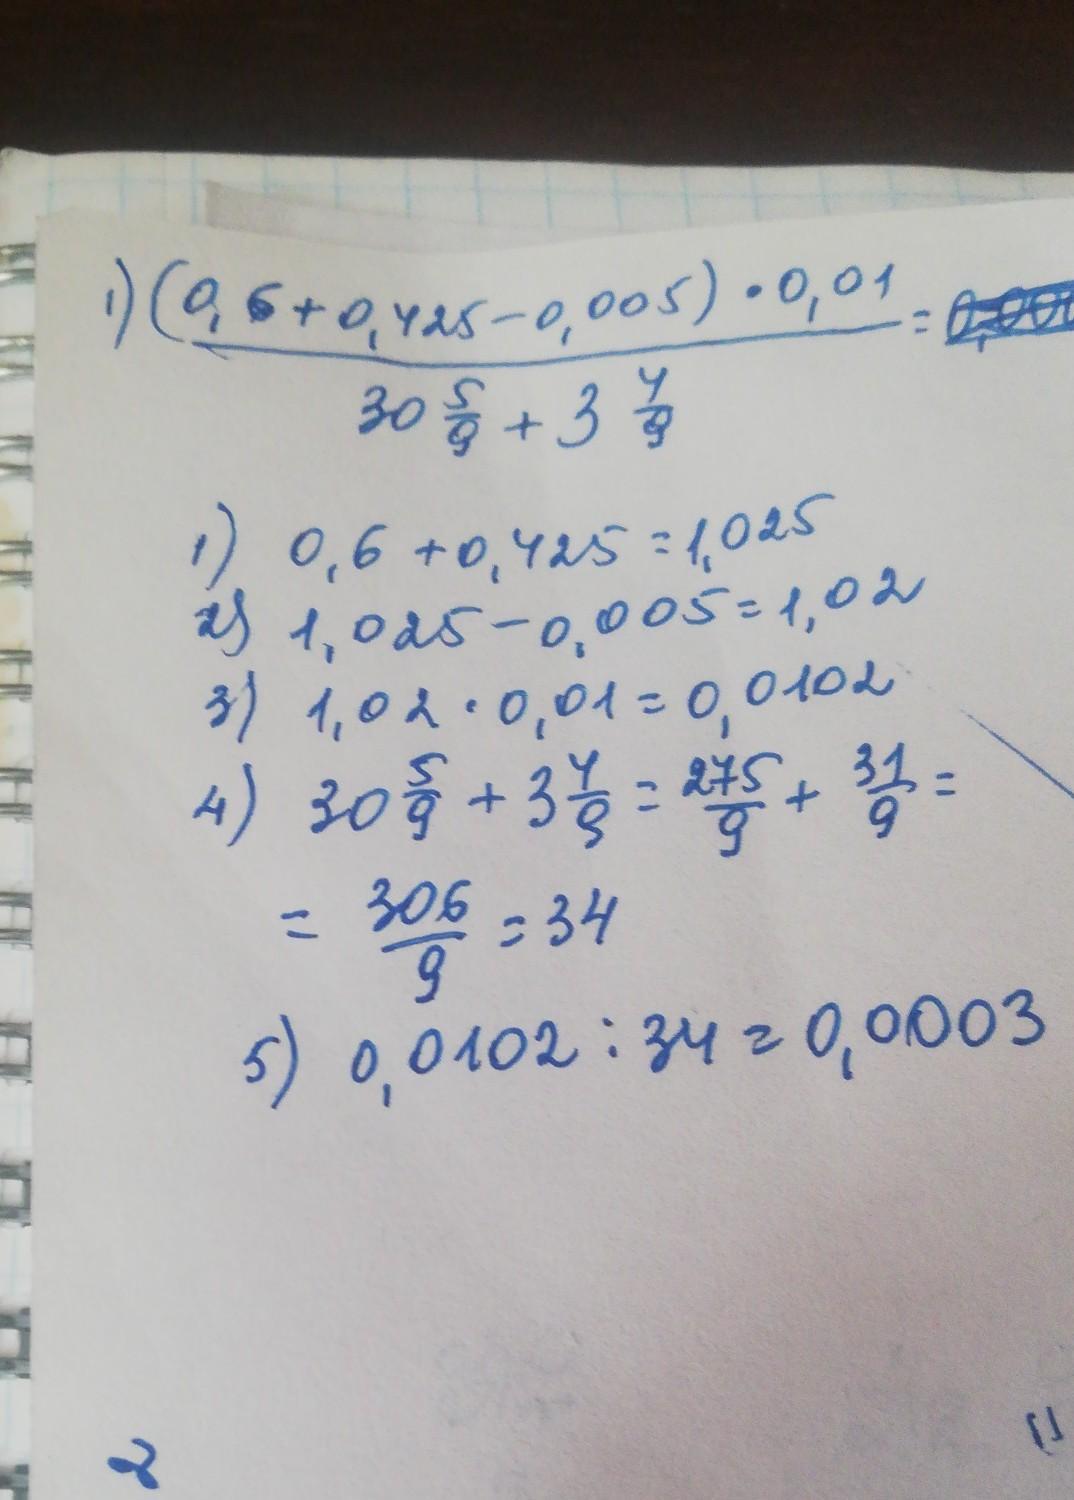 1) (0,6+0,425-0,005)·0,01 =
30 5/9 + 3 4/9
1) 0,6 + 0,425 = 1,025
2) 1,025 - 0,005 = 1,02
3) 1,02 · 0,01 = 0,0102
4) 30 5/9 + 3 4/9 = 275/9 + 31/9 =
= 306/9 = 34
5) 0,0102 : 34 = 0,0003
2